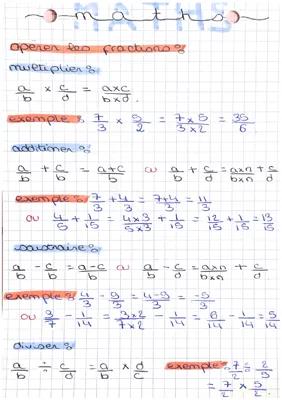 maths
opérer les fractions :
multiplier :
a/b × c/d = a×c/b×d.
exemple : 7/3 × 5/2 = 7×5/3×2 = 35/6
additionner :
a/b + c/b = a+c/b ou a/b + c/d = a×n/b×n + c/d
exemple : 7/3 + 4/3 = 7+4/3 = 11/3
ou 4/5 + 1/15 = 4×3/5×3 + 1/15 = 12/15 + 1/15 = 13/15
soustraire :
a/b - c/b = a-c/b ou a/b - c/d = a×n/b×n + c/d
exemple : 4/3 - 9/3 = 4-9/3 = -5/3
ou 3/7 - 1/14 = 3×2/7×2 - 1/14 = 6/14 - 1/14 = 5/14
diviser :
a/b ÷ c/d = a/b × d/c
exemple : 7/2 ÷ 2/5
= 7/2 × 5/2